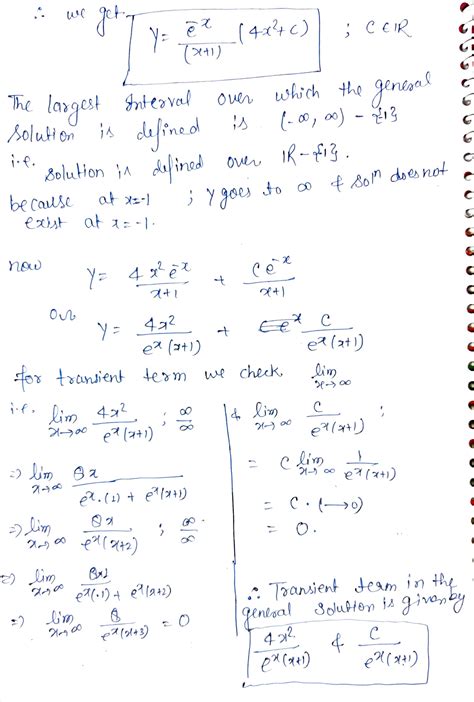 ∴ we get
y = e^-x/(x+1) (4x²+c) ; C ∈ IR
The largest interval over which the general
solution is defined is (-∞, ∞) - {1}
i.e. solution is defined over IR - {1}.
because at x=-1 ; y goes to ∞ & solⁿ does not
exist at x = -1.
now y = 4x²e^-x/(x+1) + ce^-x/(x+1)
Or y = 4x²/(e^x(x+1)) + c/(e^x(x+1))
for transient term we check lim x→∞
i.e. lim x→∞ 4x²/(e^x(x+1)) ; ∞/∞
⇒ lim x→∞ 8x/(e^x.(1) + e^x(x+1))
⇒ lim x→∞ 8x/(e^x(x+2)) ; ∞/∞
⇒ lim x→∞ 8x1/(e^x(.1) + e^x(x+2))
⇒ lim x→∞ 8/(e^x(x+3)) = 0
& lim x→∞ c/(e^x(x+1)) ;
= c lim x→∞ 1/(e^x(x+1))
= c · (→0)
= 0.
∴ Transient term in the
general solution is given by
4x²/(e^x(x+1)) & c/(e^x(x+1))